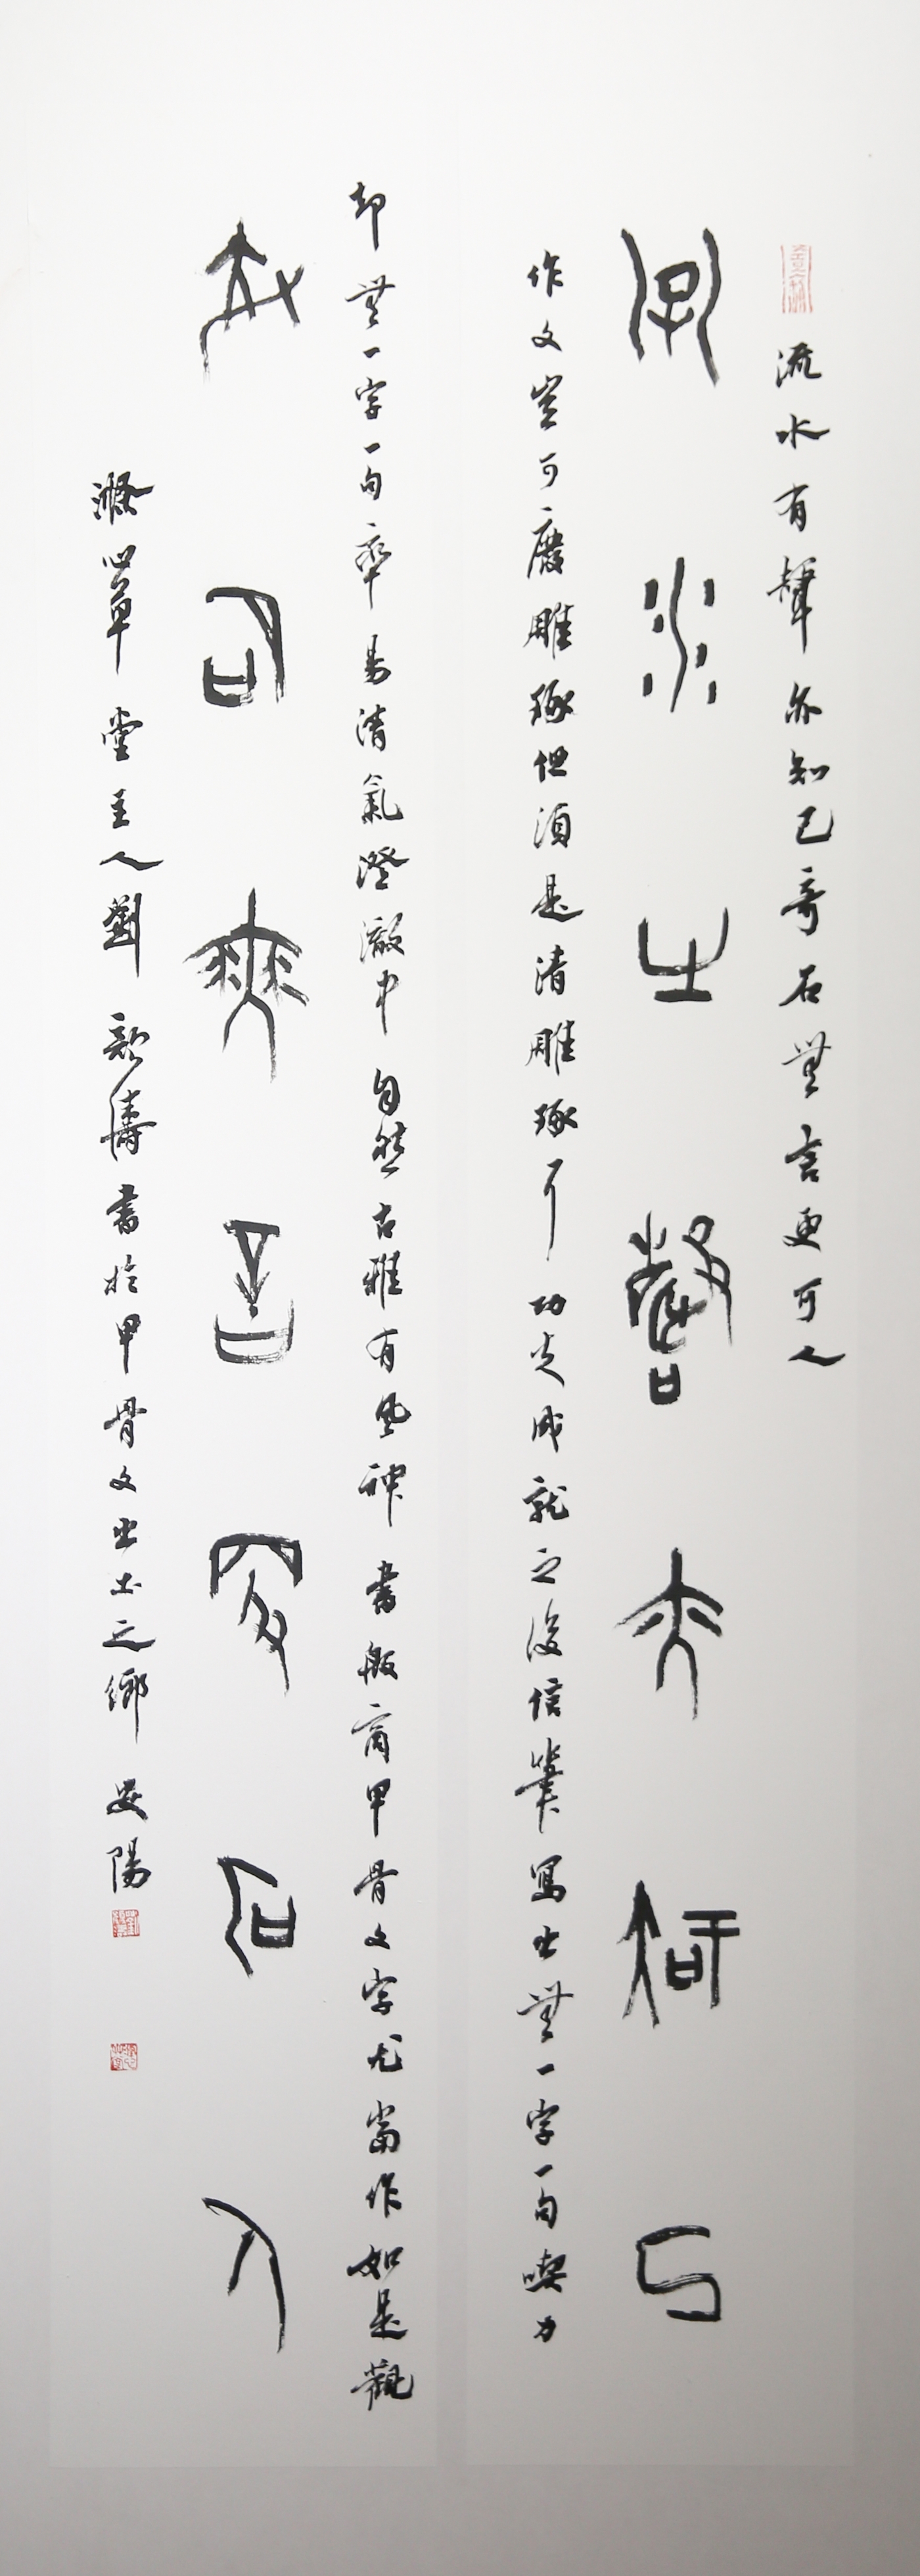 流水有聲亦知己奇石無言更可人
流水有聲亦知己
作文豈可廢雕琢但須是清雕琢耳功夫成就之後信筆寫出無一字一句喫力
却無一字一句率易清氣澄澈中自然古雅有風神書殷商甲骨文字尤當作如是觀
奇石無言更可人
滌心草堂主人劉顏濤書於甲骨文出土之鄉安陽